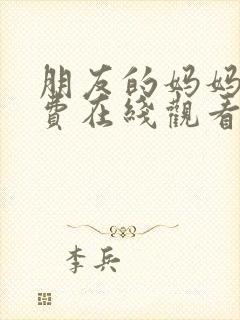 朋友的妈妈
费在綫觀看
李兵